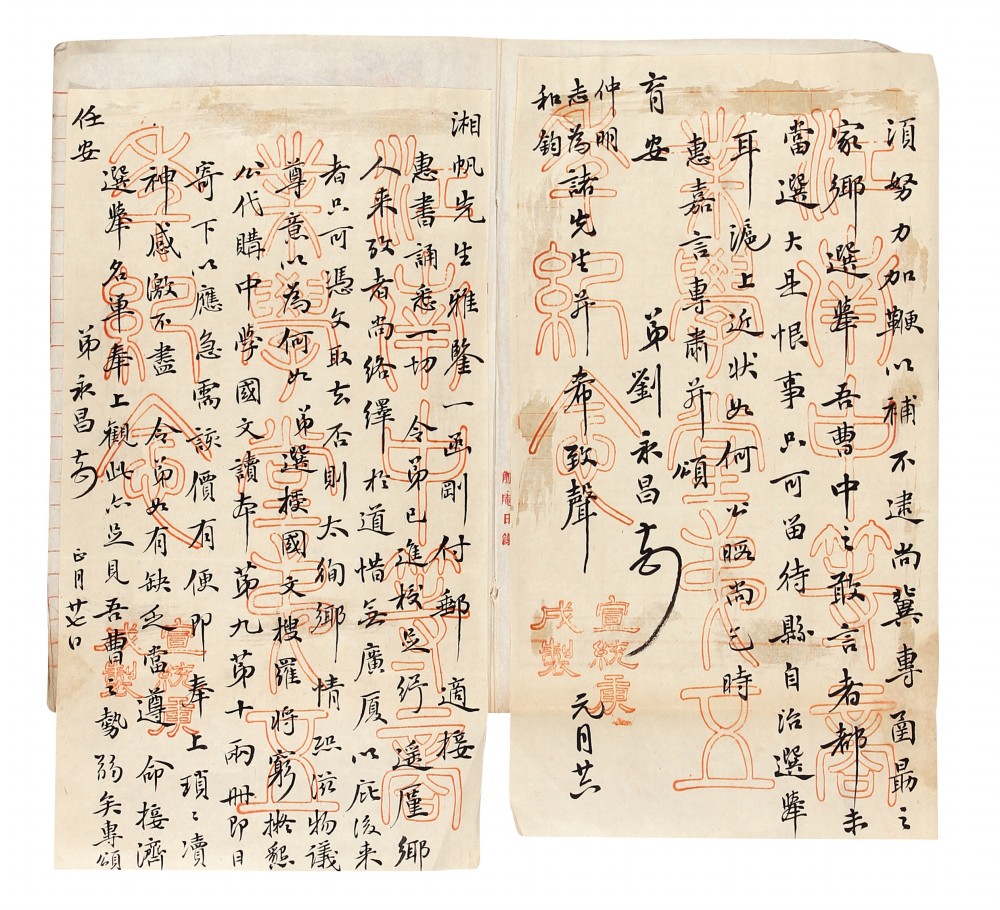 須努力加鞭以補不逮尚冀專函勗之
家鄉選舉吾曹中之敢言者都未
當選大是恨事只可留待縣自治選舉
耳滬上近狀如何公暇尚乞時
惠嘉言專肅并頌
育安
弟劉永昌
元月廿六
仲明
志為諸先生并希致聲
和鈞
江南中等商
業學堂五
紀念
宣統庚
戌製
日錄
湘帆先生雅鑒一函剛付郵適接
惠書誦悉一切令弟已進校足紓遙廑鄉
人來攷者尚絡繹於道惜無廣厦以庇後来
者只可憑文取去否則太徇鄉情恐滋物議
尊意以為何如弟選授國文搜羅將窮擬懇
公代購中學國文讀本第九第十兩冊即日
寄下以應急需該價有便即奉上瑣〻瀆
神感激不盡令弟如有缺乏當遵命接濟
選舉名單奉上觀此亦足見吾曹之勢弱矣專頌
任安
弟永昌
正月廿七日
江南中等商
業學堂五
紀念
宣統庚
戌製